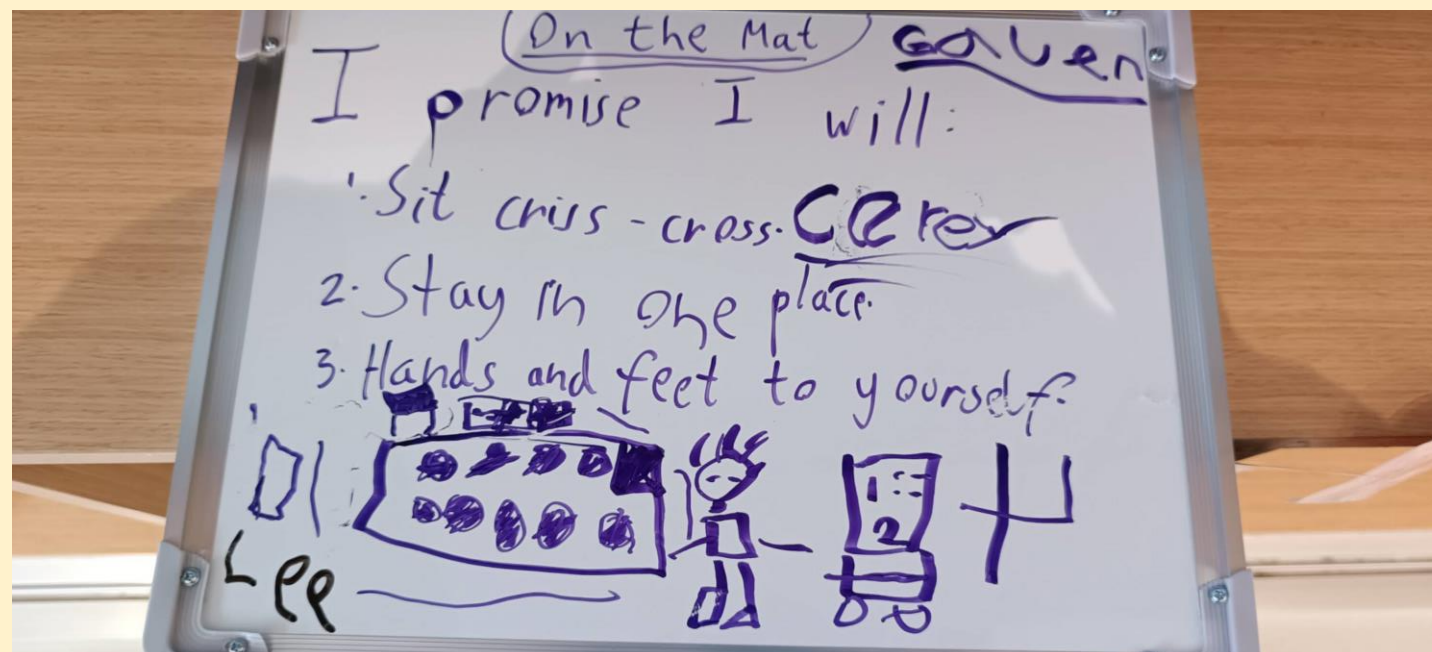 On the Mat
Gaven
I promise I will:
1. Sit criss-cross. Cerey
2. Stay in one place.
3. Hands and feet to yourself.
1
2
Lee